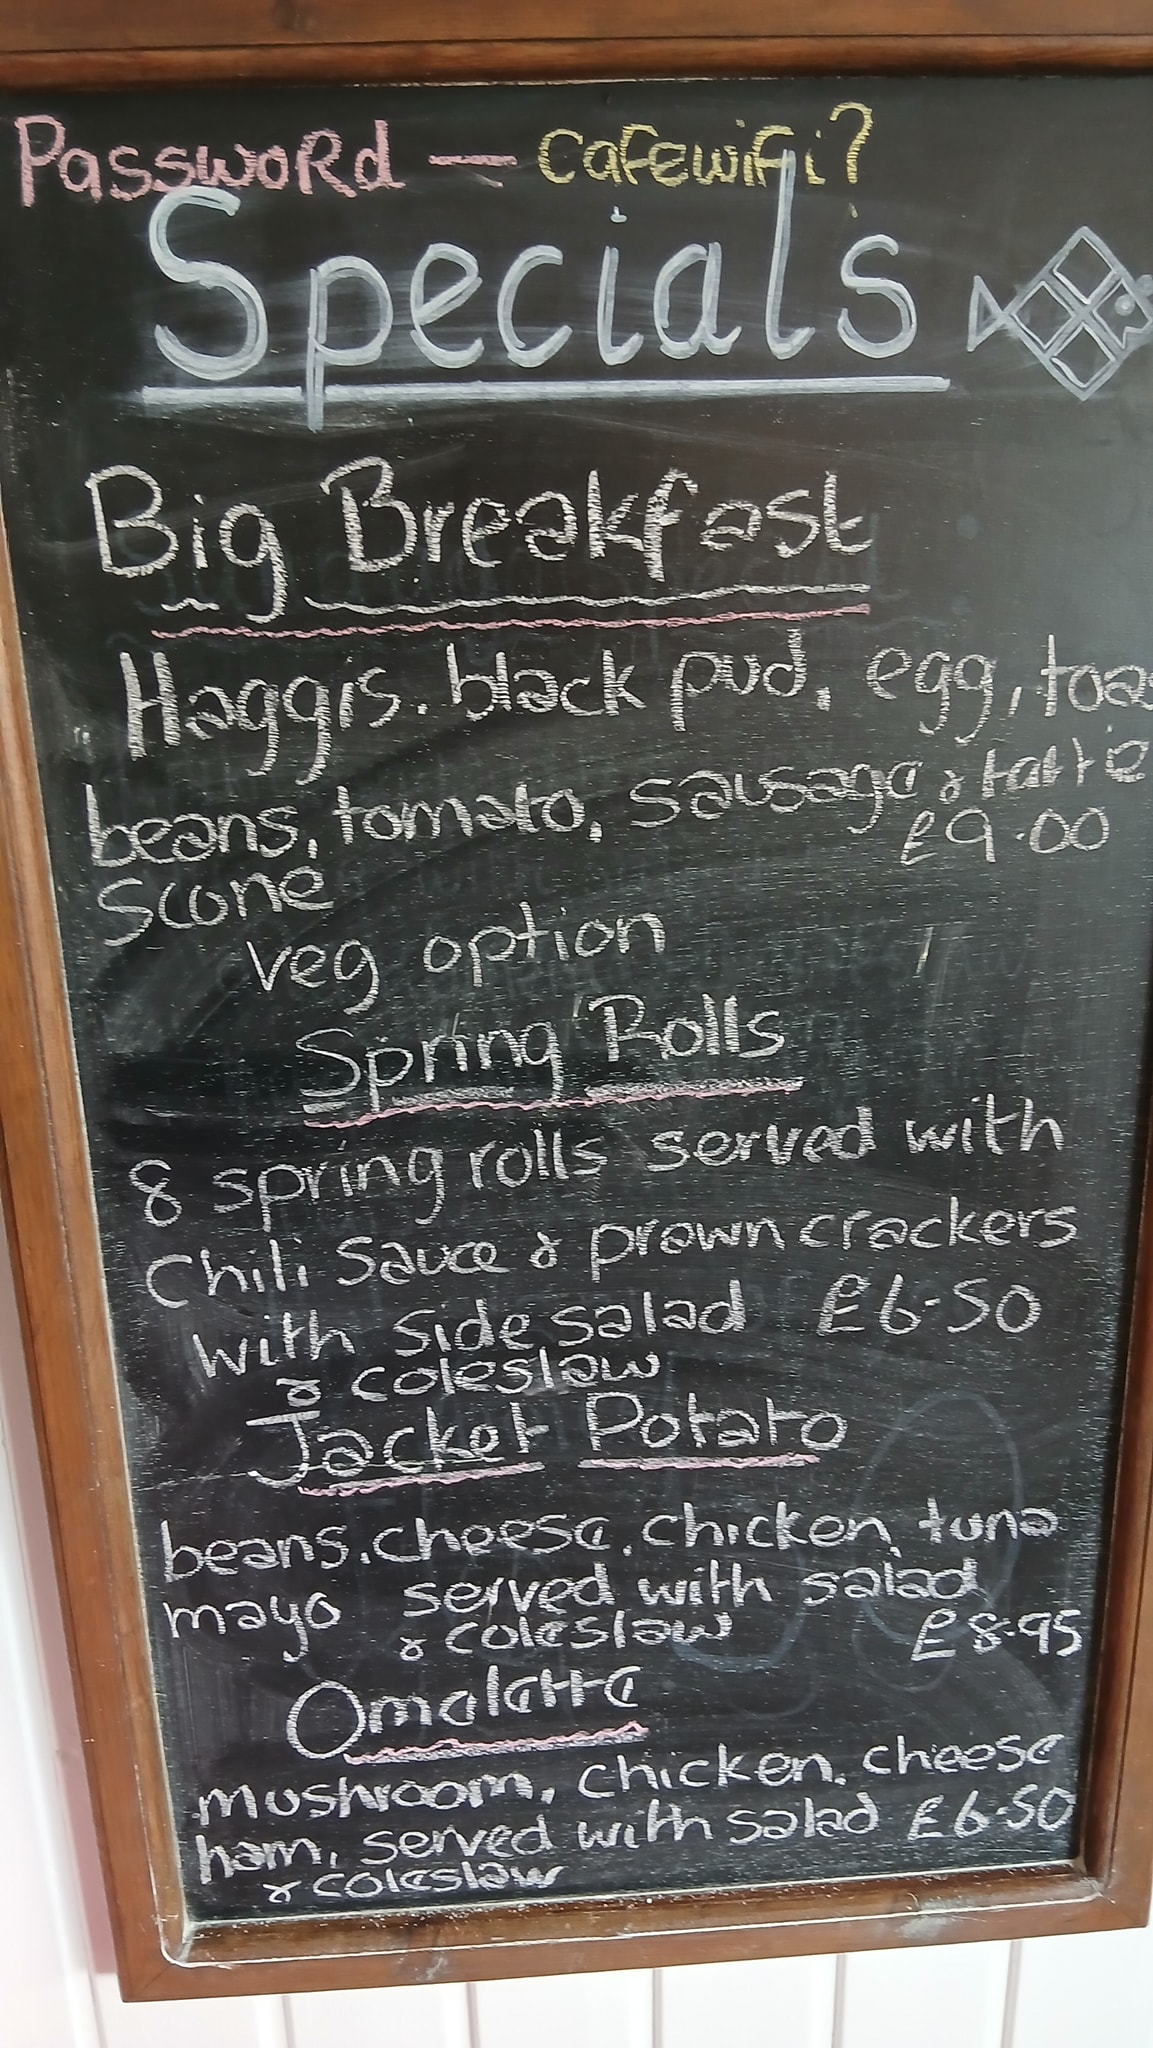 Password — cafewifi?
Specials
Big Breakfast
Haggis. black pud, egg, toas
beans, tomato, sausage & tattie
£9.00
scone
veg option
Spring Rolls
8 spring rolls served with
Chili Sauce & prawn crackers
with side salad £6-50
& coleslaw
Jacket Potato
beans, cheese, chicken, tuna
mayo served with salad
& coleslaw £8-95
Omelette
mushroom, chicken, cheese
ham, served with salad £6-50
& coleslaw